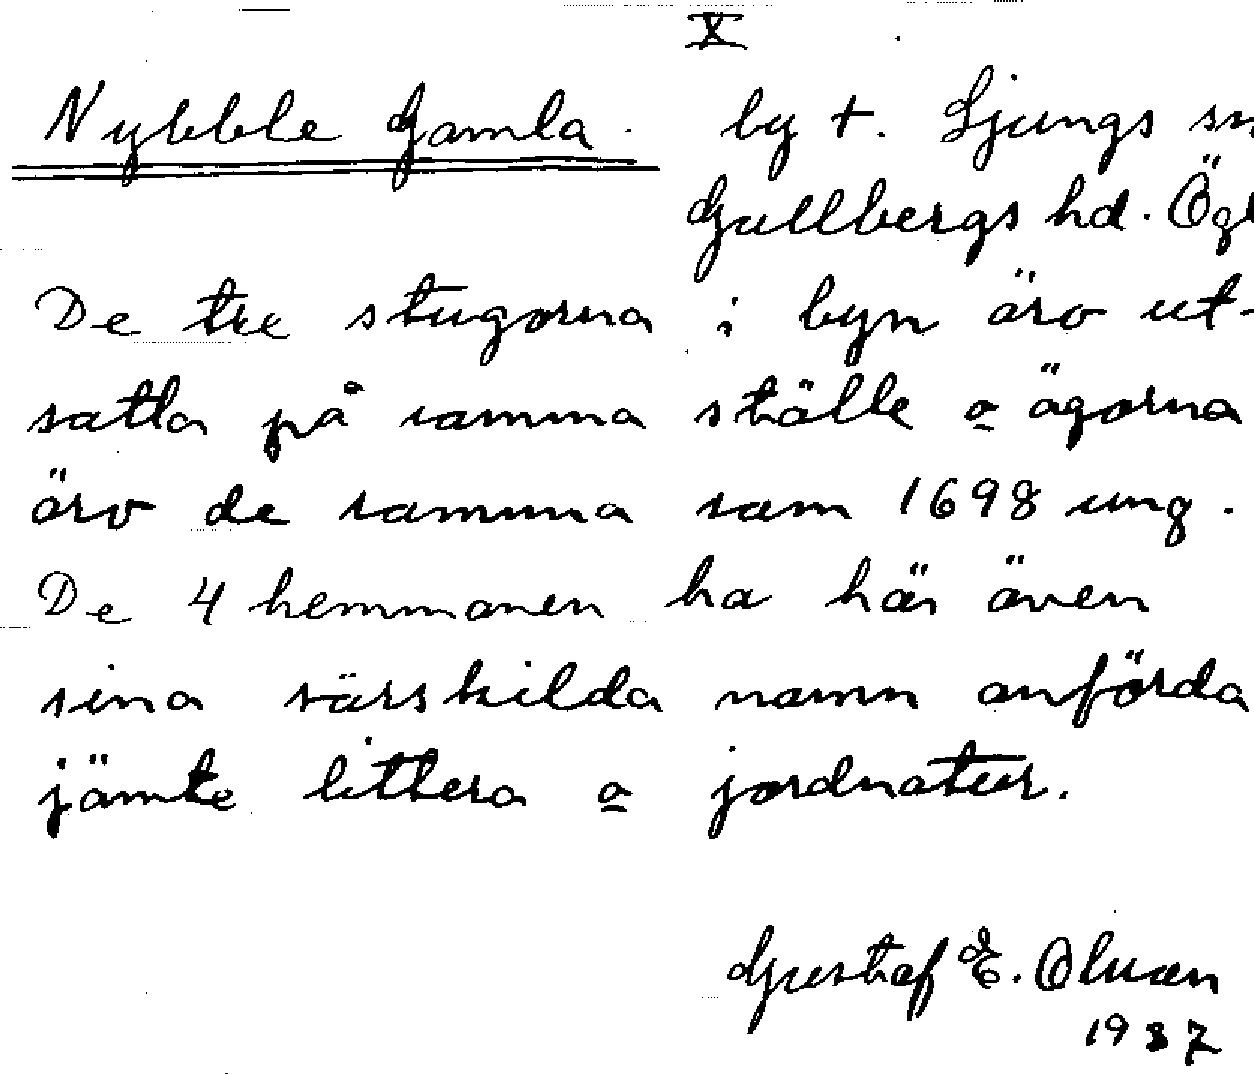 X
Nybble Gamla. by t. Ljungs sn
Gullbergs hd. Ögl
De tre stugorna i byn äro ut-
satta på samma ställe o ägorna
äro de samma som 1698 ung.
De 4 hemmanen ha här även
sina särskilda namn anförda
jämte littera o jordnatur.
Gustaf E. Olsson
1937